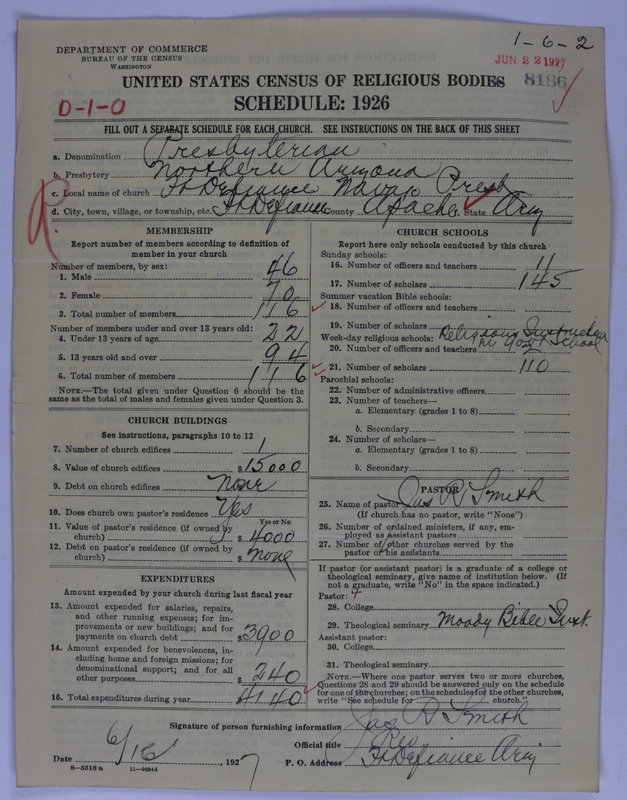 1-6-2
DEPARTMENT OF COMMERCE
BUREAU OF THE CENSUS
WASHINGTON
JUN 22 1927
8186
UNITED STATES CENSUS OF RELIGIOUS BODIES
SCHEDULE: 1926
D-1-0
FILL OUT A SEPARATE SCHEDULE FOR EACH CHURCH. SEE INSTRUCTIONS ON THE BACK OF THIS SHEET
a. Denomination Presbyterian
b. Presbytery Northern Arizona
c. Local name of church Ft Defiance Navajo Presb
d. City, town, village, or township, etc. Ft Defiance County Apache State Ariz
R.
MEMBERSHIP
Report number of members according to definition of
member in your church
Number of members, by sex:
1. Male 46
2. Female 70
3. Total number of members 116
Number of members under and over 13 years old:
4. Under 13 years of age 22
5. 13 years old and over 94
6. Total number of members 116
NOTE.—The total given under Question 6 should be the
same as the total of males and females given under Question 3.
CHURCH BUILDINGS
See instructions, paragraphs 10 to 12
7. Number of church edifices 1
8. Value of church edifices $15000
9. Debt on church edifices None
10. Does church own pastor's residence Yes
Yes or No
11. Value of pastor's residence (if owned by
church) $4000
12. Debt on pastor's residence (if owned by
church) $none
EXPENDITURES
Amount expended by your church during last fiscal year
13. Amount expended for salaries, repairs,
and other running expenses; for im-
provements or new buildings; and for
payments on church debt $3900
14. Amount expended for benevolences, in-
cluding home and foreign missions; for
denominational support; and for all
other purposes $240
15. Total expenditures during year 4140
CHURCH SCHOOLS
Report here only schools conducted by this church
Sunday schools:
16. Number of officers and teachers 11
17. Number of scholars 145
Summer vacation Bible schools:
18. Number of officers and teachers
19. Number of scholars
Week-day religious schools: Religious Instruction
in Govt School
20. Number of officers and teachers
21. Number of scholars 110
Parochial schools:
22. Number of administrative officers
23. Number of teachers—
a. Elementary (grades 1 to 8)
b. Secondary
24. Number of scholars—
a. Elementary (grades 1 to 8)
b. Secondary
PASTOR
25. Name of pastor Jas R Smith
(If church has no pastor, write "None")
26. Number of ordained ministers, if any, em-
ployed as assistant pastors
27. Number of other churches served by the
pastor or his assistants
If pastor (or assistant pastor) is a graduate of a college or
theological seminary, give name of institution below. (If
not a graduate, write "No" in the space indicated.)
Pastor:
28. College
29. Theological seminary Moody Bible Inst.
Assistant pastor:
30. College
31. Theological seminary
NOTE.—Where one pastor serves two or more churches,
Questions 28 and 29 should be answered only on the schedule
for one of the churches; on the schedules for the other churches,
write "See schedule for church."
Signature of person furnishing information Jas R Smith
Official title Rev
Date 6/16, 1927 P. O. Address Ft Defiance Ariz
8—5518 a